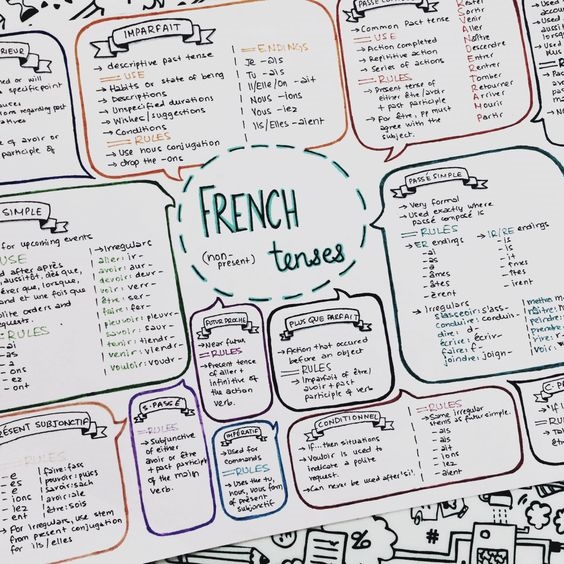 IMPARFAIT
→ descriptive past tense
= USE
→ Habits or state of being
→ Descriptions
→ Unspecified durations
→ Wishes/suggestions
→ Conditions
= RULES
→ Use nous conjugation
→ drop the -ons
= ENDINGS
Je -ais
Tu -ais
Il/Elle/On -ait
Nous -ions
Vous -iez
Ils/Elles -aient
PASSÉ
→ Common Past tense
= USE
→ Action completed
→ Repititive action
→ Series of actions
= RULES
→ Present tense of
either être/avoir
+ past participle
→ For être, pp must
agree with the
subject.
Rester
Partir
Venir
Aller
Naître
Descendre
Entrer
Rentrer
Tomber
Retourner
Arriver
Mourir
Partir
RIEUR
or will
specific point
regarding past
of avoir or
participle &
FRENCH
(non-
present)
tenses
SIMPLE
for upcoming events
USE
after après
aussitôt, dès que,
que, lorsque,
and et une fois que
orders and
RULES
- ai
- as
- a
- ons
- ez
- ont
→ Irregulars
aller: ir-
avoir: aur-
devoir: devr-
voir: verr-
être: ser-
faire: fer-
pleuvoir: pleuvr-
savoir: saur-
tenir: tiendr-
venir: viendr-
vouloir: voudr-
PASSÉ SIMPLE
→ Very formal
→ Used exactly where
passé composé is
= RULES
→ ER endings
-ai
-as
-a
-âmes
-âtes
-èrent
→ IR/RE endings
-is
-is
-it
-îmes
-îtes
-irent
→ Irregulars
s'asseoir: s'ass-
conduire: conduis-
dire: d-
écrire: écriv-
faire: f-
joindre: joign-
mettre: m
naître:
peindre:
prendre:
rire: r-
voir: v
FUTUR PROCHE
→ Near futur
= RULES
→ Present tense
of aller +
infinitive of
the action
verb.
PLUS QUE PARFAIT
→ Action that occured
before an object
= RULES
→ Imparfait of être/
avoir + past
participle & verb
PRÉSENT SUBJONCTIF
RULES
- e
- es
- e
- ions
- iez
- ent
faire: fass
pouvoir: puiss
savoir: sach
avoir: aie
être: sois
→ For irregulars, use stem
from present conjugation
for ils/elles
S. PASSÉ
= RULES
→ Subjunctive
of either
avoir or être
+ past participle
of the main
verb.
IMPÉRATIF
→ Used for
commands
= RULES
→ Uses the tu,
nous, vous form
of présent
Subjonctif
CONDITIONNEL
→ If...then situations
→ Vouloir is used to
indicate a polite
request.
→ Can never be used after 'si'.
= RULES
→ Same irregular
stems as futur simple.
-ais
-ais
-ait
-ions
-iez
-aient
C.P
→ If
→ U
RULES